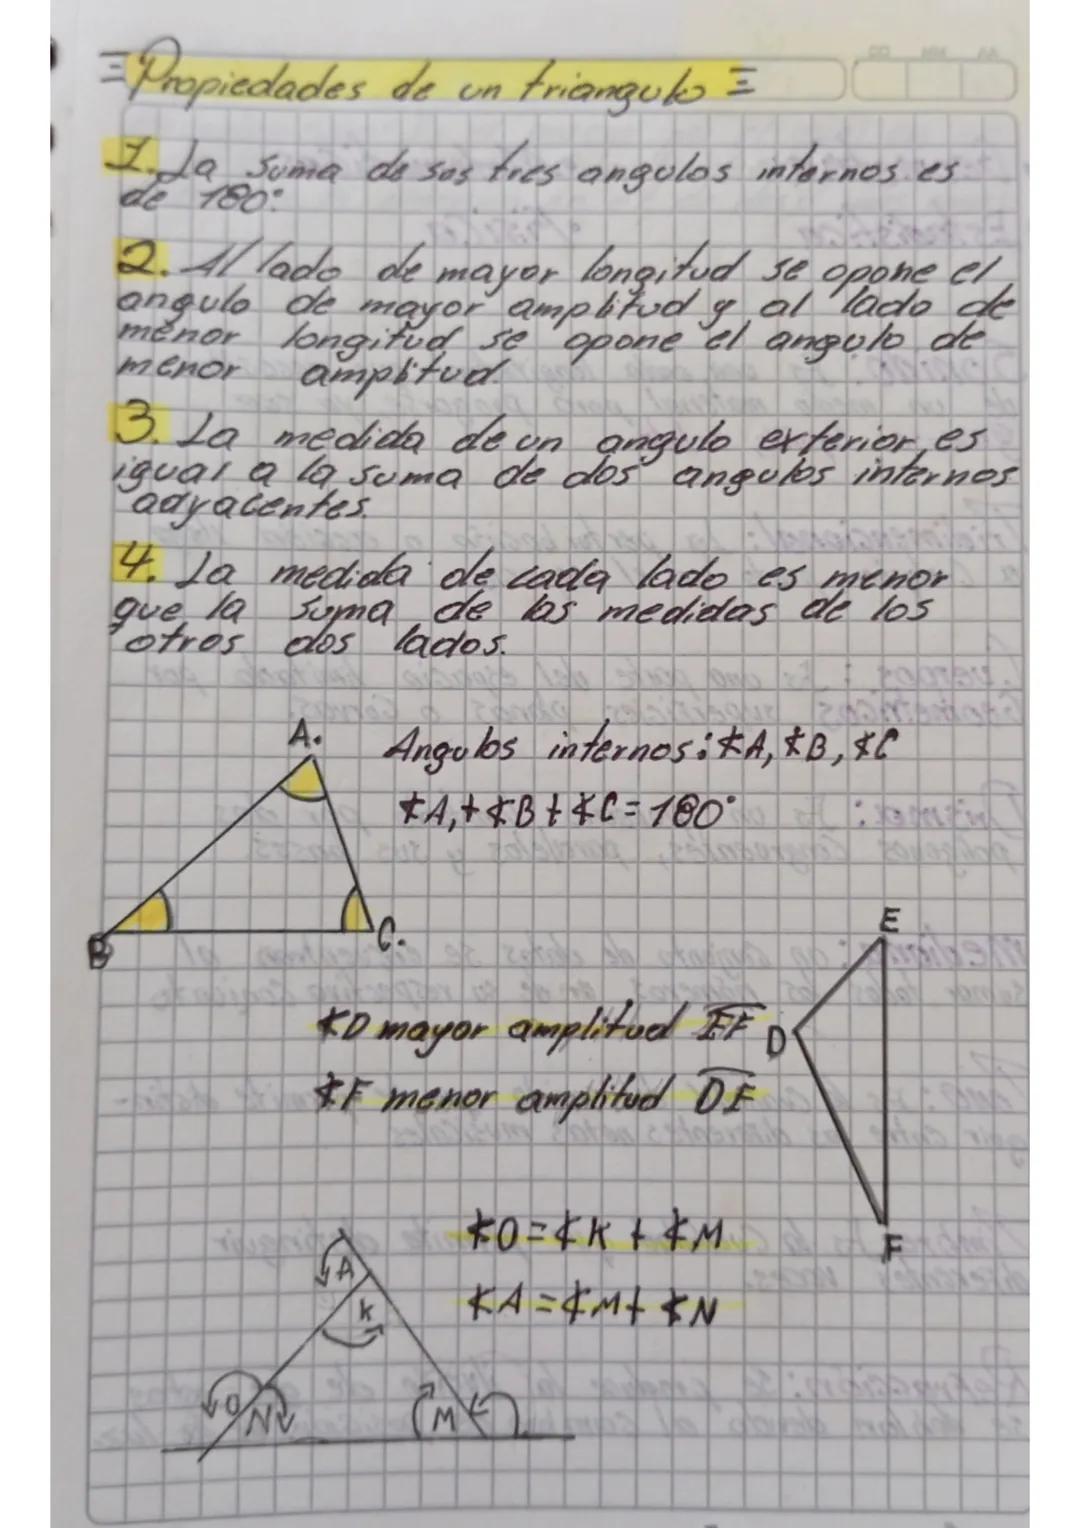 Propiedades de un triangulo
1. La suma de sus tres angulos internos es
de 180°
2. Al lado de mayor longitud se opone el
angulo de mayor amplitud y al lado de
menor longitud se opone el angulo de
menor amplitud.
3. La medida de un angulo exterior es
igual a la suma de dos angulos internos
adyacentes.
4. La medida de cada lado es menor
que la suma de las medidas de los
otros dos lados.
A.
Angulos internos: ∢A, ∢B, ∢C
∢A, + ∢B + ∢C = 180°
B
C.
E
∢D mayor amplitud EF
D
∢F menor amplitud DE
∢O = ∢K + ∢M
F
A
∢A = ∢M + ∢N
K
O
N
M